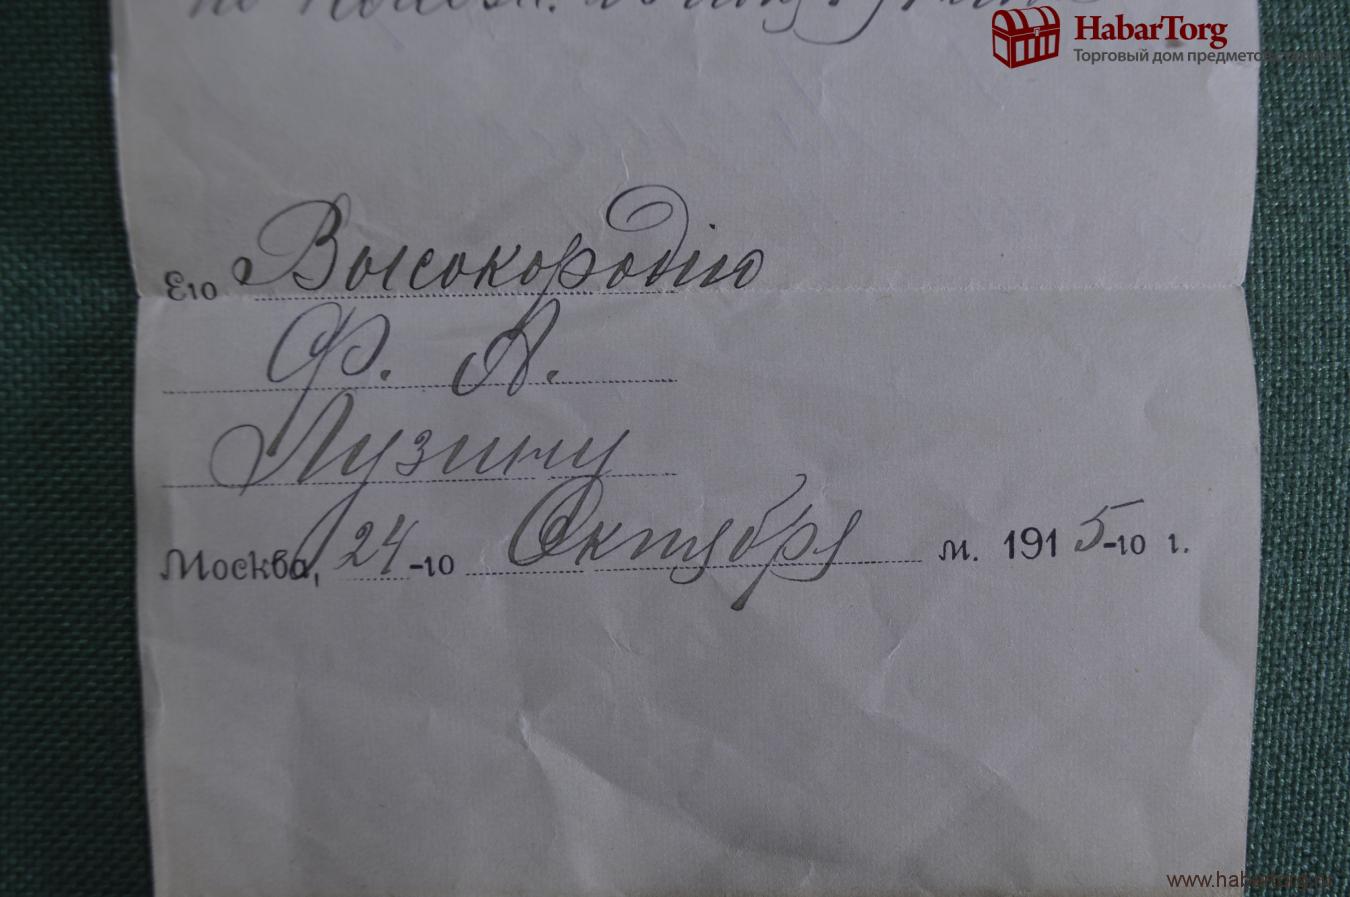 по
HabarTorg
Торговый дом предметов
Его Высокородію
Ф. А.
Лузину
Москва, 24-го Октября м. 1915-го г.
www.habartorg.ru